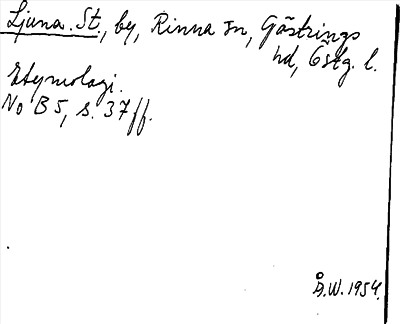 Ljuna. St., by, Rinna sn, Göstrings
hd, Östg. l.
Etymologi.
No B 5, s. 37 ff.
Å.W. 1954.